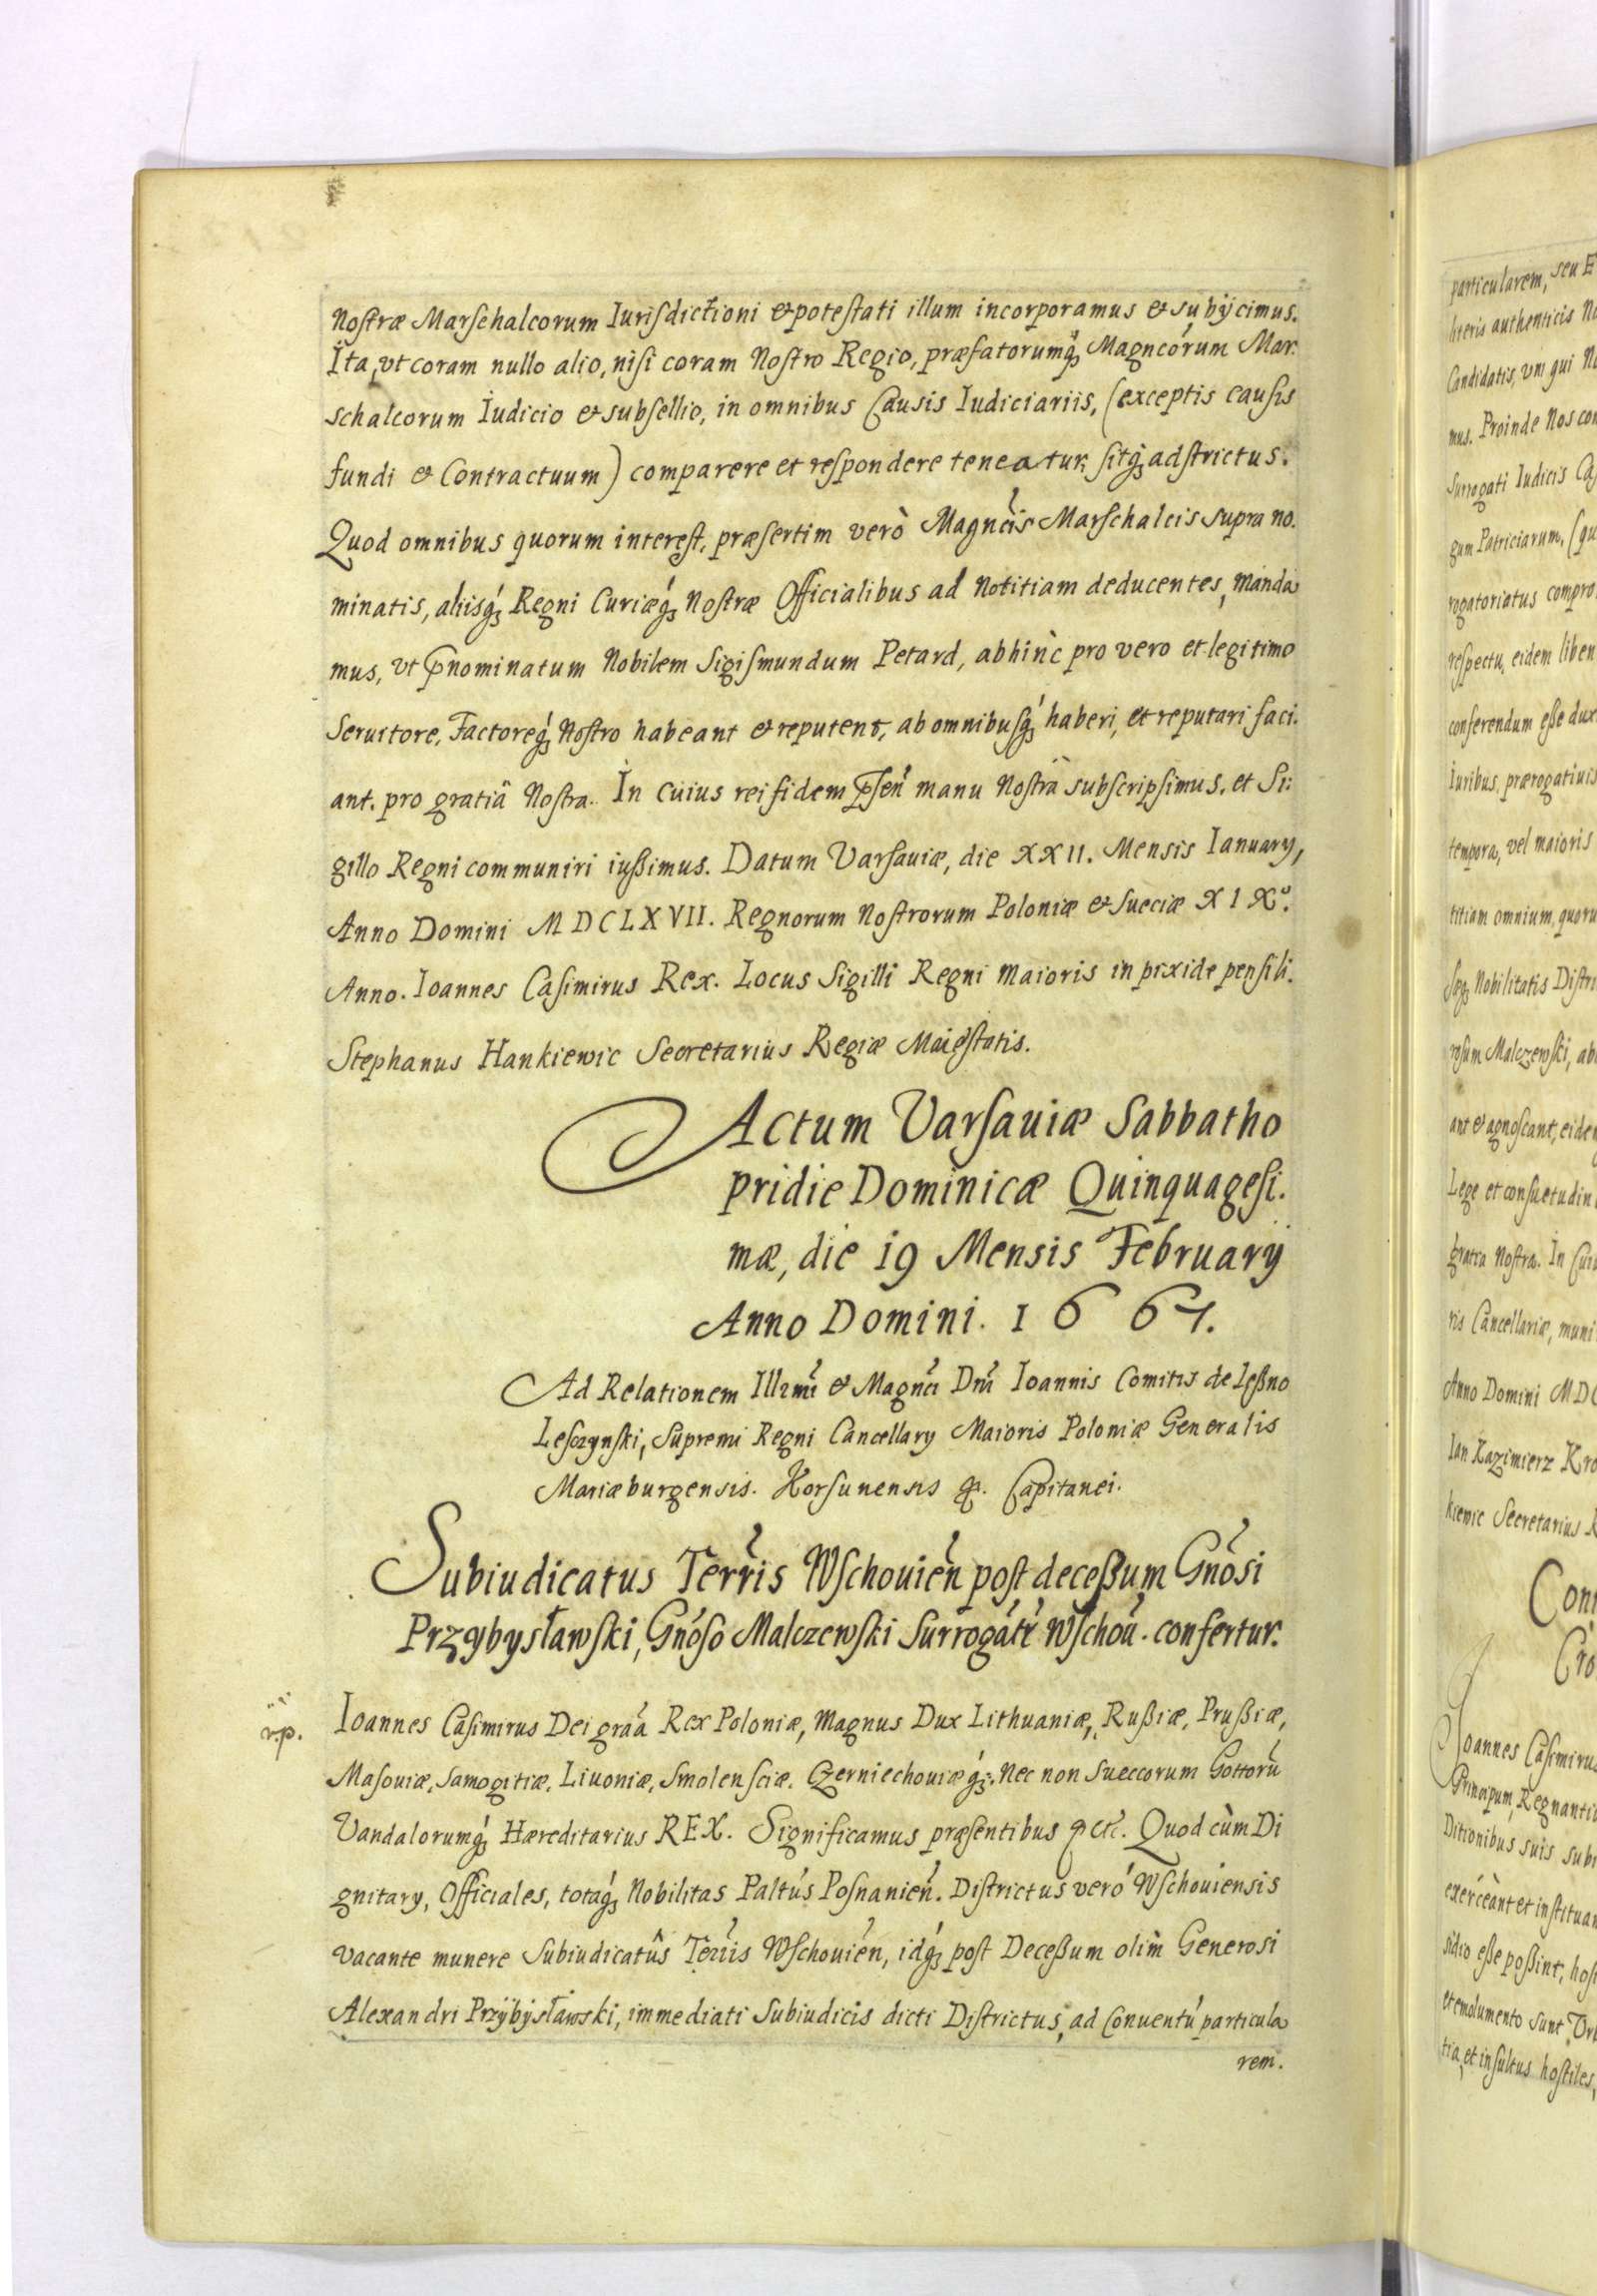 Nostræ Marschalcorum Iurisdictioni & potestati illum incorporamus & subÿcimus.
Ita, vt coram nullo alio, nisi coram Nostro Regio, præfatorumq́ȝ Magncorum Mar.
schalcorum Iudicio & subsellio, in omnibus Causis Iudiciariis, (exceptis causis
fundi & Contractuum) comparere et respondere teneatur, sitq́ȝ adstrictus.
Quod omnibus quorum interest, præsertim verò Magncis Marschalcis supra no.
minatis, aliisq́ȝ Regni Curiæq́ȝ Nostræ Officialibus ad Notitiam deducentes, manda
mus, vt pnominatum Nobilem Sigismundum Petard, abhinc pro vero et legitimo
Seruitore, Factoreq́ȝ Nostro habeant & reputent, ab omnibusq́ȝ haberi, et reputari faci.
ant. pro gratiâ Nostra. In cuius rei fidem psen manu Nostrâ subscripsimus, et Si:
gillo Regni communiri iußimus. Datum Varsauiæ, die XXII. Mensis Ianuarÿ,
Anno Domini MDCLXVII. Regnorum Nostrorum Poloniæ & Sueciæ XIXº.
Anno. Ioannes Casimirus Rex. Locus Sigilli Regni maioris in pixide pensili.
Stephanus Hankiewic Secretarius Regiæ Maiestatis.
Actum Varsauiæ Sabbatho
pridie Dominicæ Quinquagesi.
mæ, die 19 Mensis Februarÿ
Anno Domini. 1667.
Ad Relationem Illrmi & Magnci Dni Ioannis Comitis de Leßno
Lesczynski, Supremi Regni Cancellarÿ Maioris Poloniæ Generalis
Mariæburgensis. Korsunensis &. Capitanei.
Subiudicatus Terris Wschouien post deceßum Gnosi
Przybysławski, Gnoso Malczewski Surrogati Wschou. confertur.
r.p.
Ioannes Casimirus Dei graa Rex Poloniæ, Magnus Dux Lithuaniæ, Rußiæ, Prußiæ,
Masouiæ, Samogitiæ, Liuoniæ, Smolensciæ. Czerniechouiæq́ȝ. Nec non Sueccorum Gottorū
Vandalorumq́ȝ Hæreditarius REX. Significamus præsentibus &c. Quod cùm Di
gnitarÿ, Officiales, totaq́ȝ Nobilitas Paltus Posnanien. Districtus verò Wschouiensis
vacante munere Subiudicatûs Terris Wschouien, idq́ȝ post Deceßum olim Generosi
Alexandri Przÿbÿsławski, immediati Subiudicis dicti Districtus, ad Conuentū particula
rem.
particularem, seu
literis authenticis
Candidatis, vni qui
mus. Proinde Nos
Surrogati Iudicis
gum Patriciarum, (qu
rogatoriatus compro
respectu, eidem liben
conferendum eße dux
Iuribus, prærogatiuis
tempora, vel maioris
titiam omnium, quoru
Nobilitatis Distri
rosum Malczewski, ab
ant & agnoscant, eidem
Lege et consuetudin
gratia Nostra. In Cui
ris Cancellariæ, muni
Anno Domini MDC
Ian Kazimierz Kro
kiewic Secretarius R
Con
Cro
Ioannes Casimirus
Principum, Regnanti
Ditionibus suis subi
exerceant et instituan
sidio eße poßint, host
et emolumento sunt, Vrb
tia, et insultus hostiles,